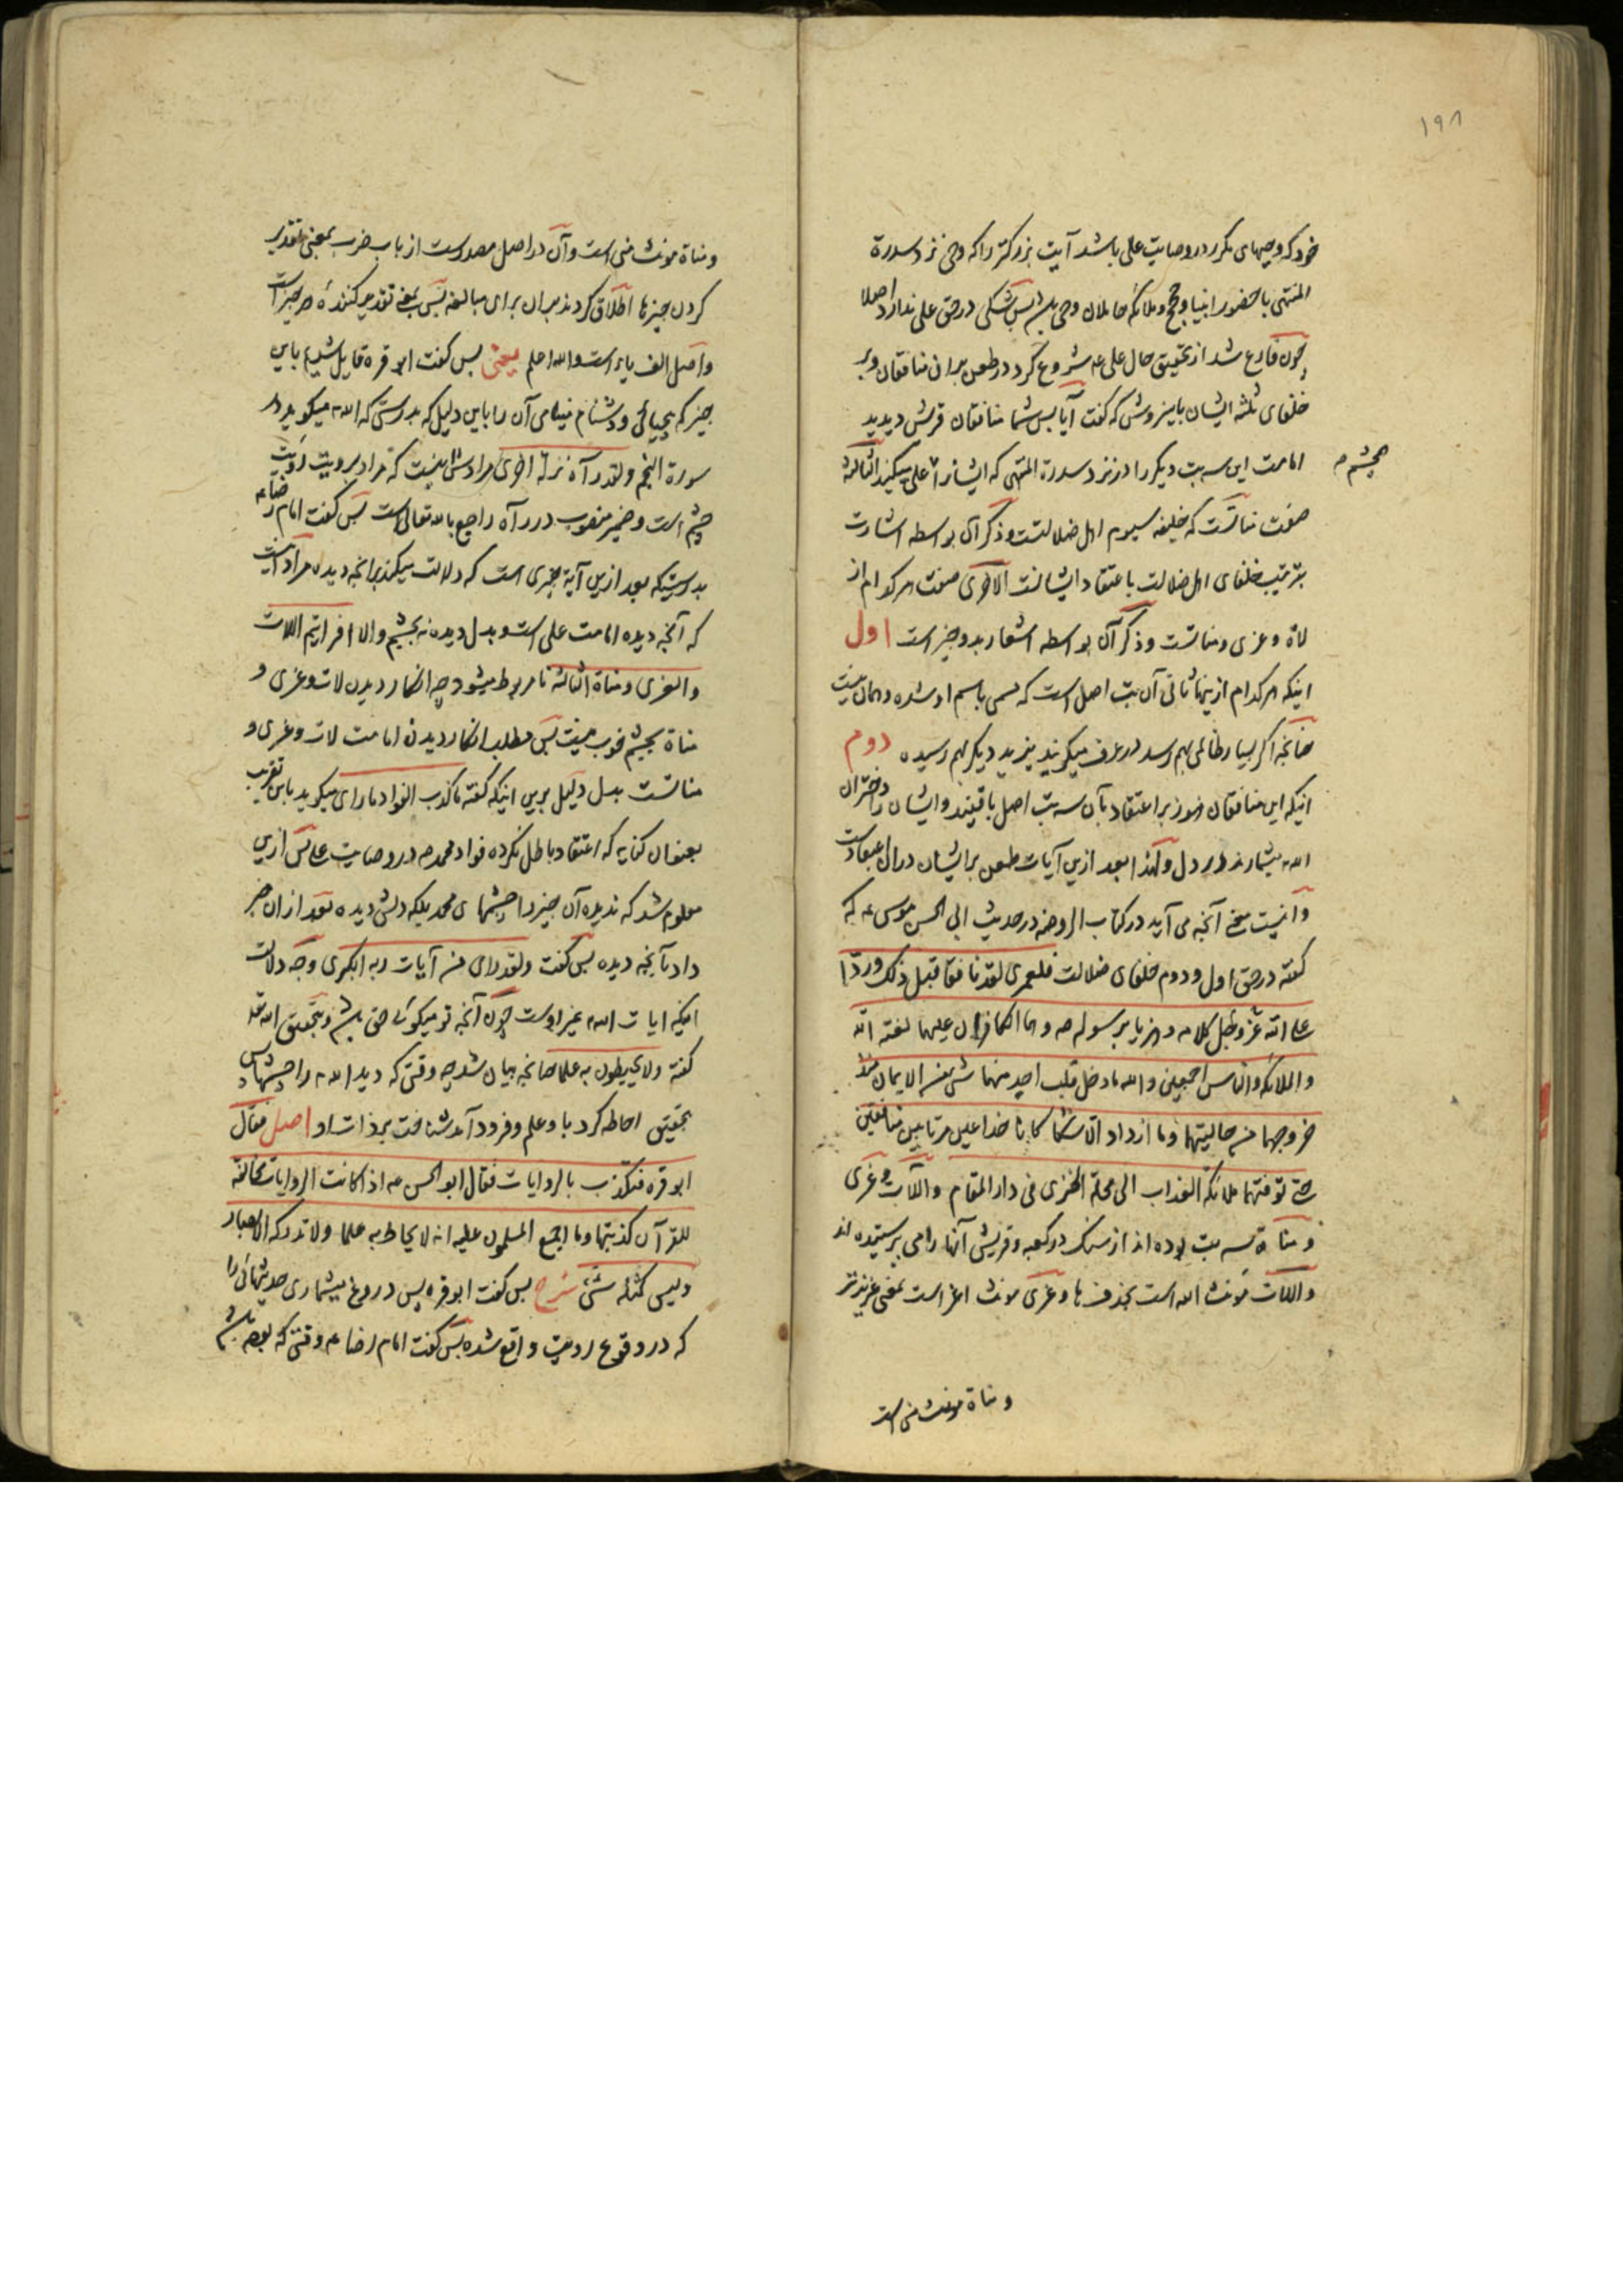 ۱۹۸
خود که وحیهای مکرر در وصایت علی باشد آیت بزرکتر را که وحی نزد سدرة
المنتهی با حضور انبیا و حجج و ملائکه حاملان وحی باشد پس شکی در حق علی ندارد اصلا
چون فارغ شد از تحقیق حال علی ع شروع کرد در طعن بر ان منافقان و بر
خلفای ثلثه ایشان باینروش که کفت آیا پس شما منافقان قریش دیدید
بچشم
امامت این سه بت دیکر را در نزد سدرة المنتهی که ایشانرا علی میکنید الثالثة
صفت مناتست که خلیفه سیوم اهل ضلالتست و ذکر آن بواسطه اشارت
بترتیب خلفای اهل ضلالت باعتقاد ایشانست الاخری صفت هر کدام از
لاة و عزی و مناتست و ذکر آن بواسطه اشعار بدو چیز است اول
اینکه هر کدام از اینها ثانی آن بت اصل است که مسمی باسم او شده و همان نیست
چنانچه اکر بسیار ظالمی بهم رسد در عرف میکویند یزید دیکر بهم رسیده دوم
اینکه این منافقان هنوز بر اعتقاد بآن سه بت اصل باقیند و ایشان را دختران
الله میشمارند در دل و لهذا بعد ازین آیات طعن بر ایشان در ان اعتقادست
و اینست معنی آنچه می آید در کتاب الروضه در حدیث ابی الحسن موسی ع که
کفته در حق اول و دوم خلفای ضلالت فلعمری لقد نافقا قبل ذلک و ردا
علی الله عز و جل کلامه و هزیا برسوله ص و هما الکافران علیهما لعنة الله
و الملائکة و الناس اجمعین و الله ما دخل قلب احد منهما شیء من الایمان منذ
خروجهما من حالیتهما و ما ازدادا الا شکا کانا خداعین مرتابین منافقین
حتی توفتهما ملائکة العذاب الی محل الخزی فی دار المقام و اللات و عزی
و مناة سه بت بوده اند از سنک در کعبه و قریش آنها را می پرستیده اند
و اللات مونث الله است بحذف ها و عزی مونث اعز است بمعنی عزیزتر
و مناة مونث منی است
و مناة مونث منی است و آن در اصل مصدر است از باب ضرب بمعنی تقدیر
کردن چیزها اطلاق کردند بر ان برای مبالغه پس بمعنی تقدیر کنندهٔ هر چیز است
و اصل الف یاء است و الله اعلم یعنی پس کفت ابو قره قایل شدیم باین
چیز که بیحیائی و دشنام میدانی آن را باین دلیل که بدرستی که الله میکوید در
سورة النجم و لقد رآه نزلة اخری مرادش اینست که مراد برویت رویت
چشم است و ضمیر منصوب در رآه راجع بالله تعالی است پس کفت امام رضا ع
بدرستیکه بعد ازین آیة چیزی است که دلالت میکند بر انچه دیده مراد اینست
که آنچه دیده امامت علی است و بدل دیده نه بچشم و الا افرایتم اللات
و العزی و مناة الثالثة نامربوط میشود چه انکار دیدن لات و عزی و
مناة بچشم خوب نیست پس مطلب انکار دیدن امامت لات و عزی و
مناتست بدل دلیل بر این اینکه کفته ما کذب الفواد ما رای میکوید باین تقریب
بعنوان کنایه که اعتقاد باطل نکرده فواد محمد ص در وصایت علی پس ازین
معلوم شد که ندیده آن چیز را چشمهای محمد بلکه دلش دیده بعد از ان خبر
داد بآنچه دیده پس کفت و لقد رای من آیات ربه الکبری وجه دلالت
اینکه ایات الله غیر اوست چون آنچه تو میکوئی حق باشد و بتحقیق الله تعالی
کفته و لا یحیطون به علما چنانچه بیان شد چه وقتی که دید الله را چشمها پس
بتحقیق احاطه کرد باو علم و فرود آمد شناخت بر ذات او اصل فقال
ابو قره فتکذب بالروایات فقال ابو الحسن ع اذا کانت الروایات مخالفة
للقرآن کذبتها و ما اجمع المسلمون علیه انه لا یحاط به علما و لا تدرکه الابصار
و لیس کمثله شیء شرح پس کفت ابو قره پس دروغ میشماری حدیثهائی را
که در وقوع رویت واقع شده پس کفت امام رضا ع وقتی که بوده باشد